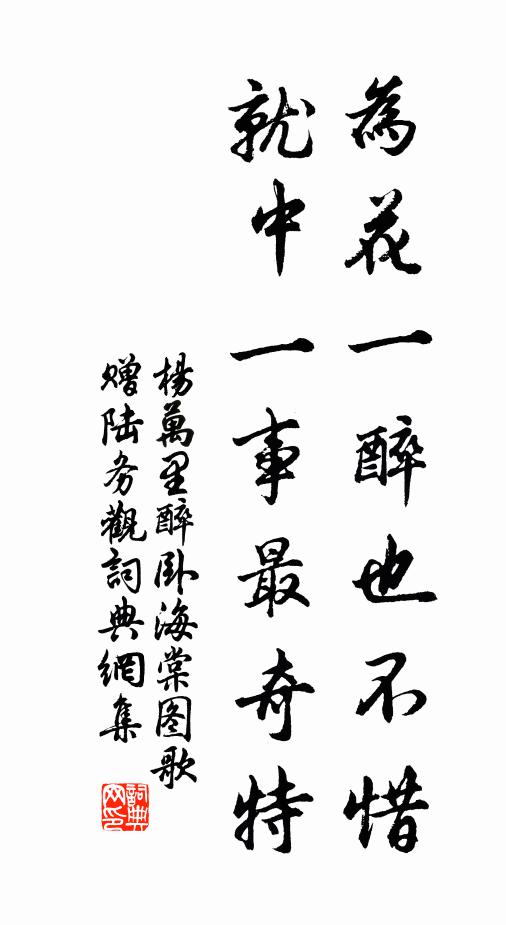 為花一醉也不惜
就中一事最奇特
楊萬里醉卧海棠图歌
赠陆务觀詞典網集
詞典网印